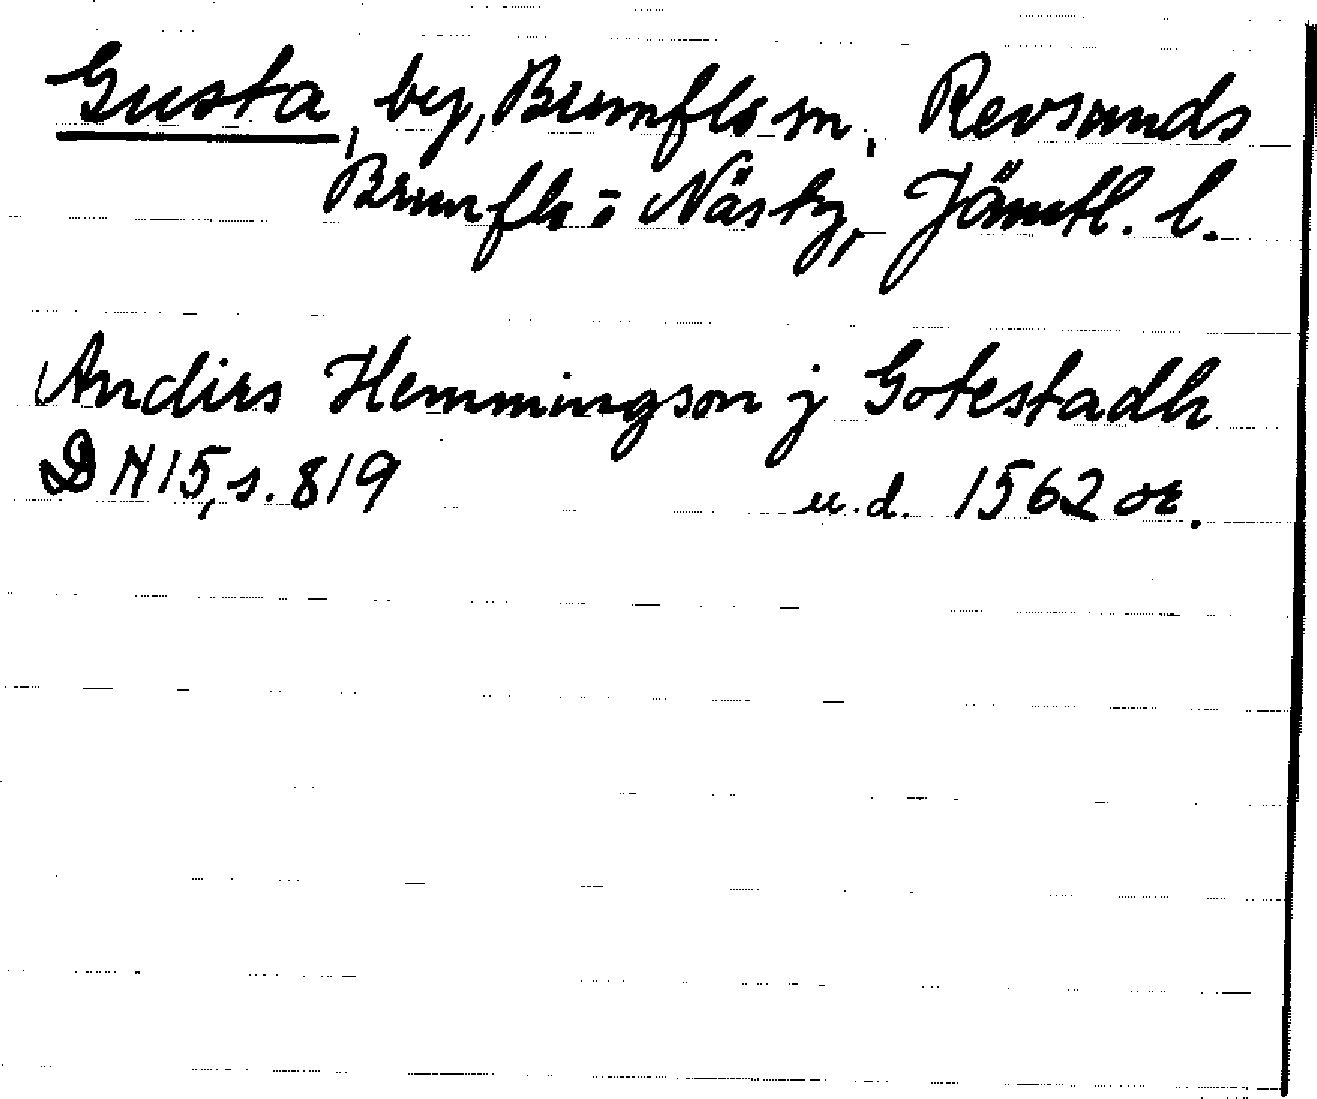 Gusta, by, Brunflo sn, Revsunds
Brunflo o Näs tg, Jämtl. l.
Andirs Hemmingson j Gotestadh
DN 15, s. 819 u.d. 1562 or.